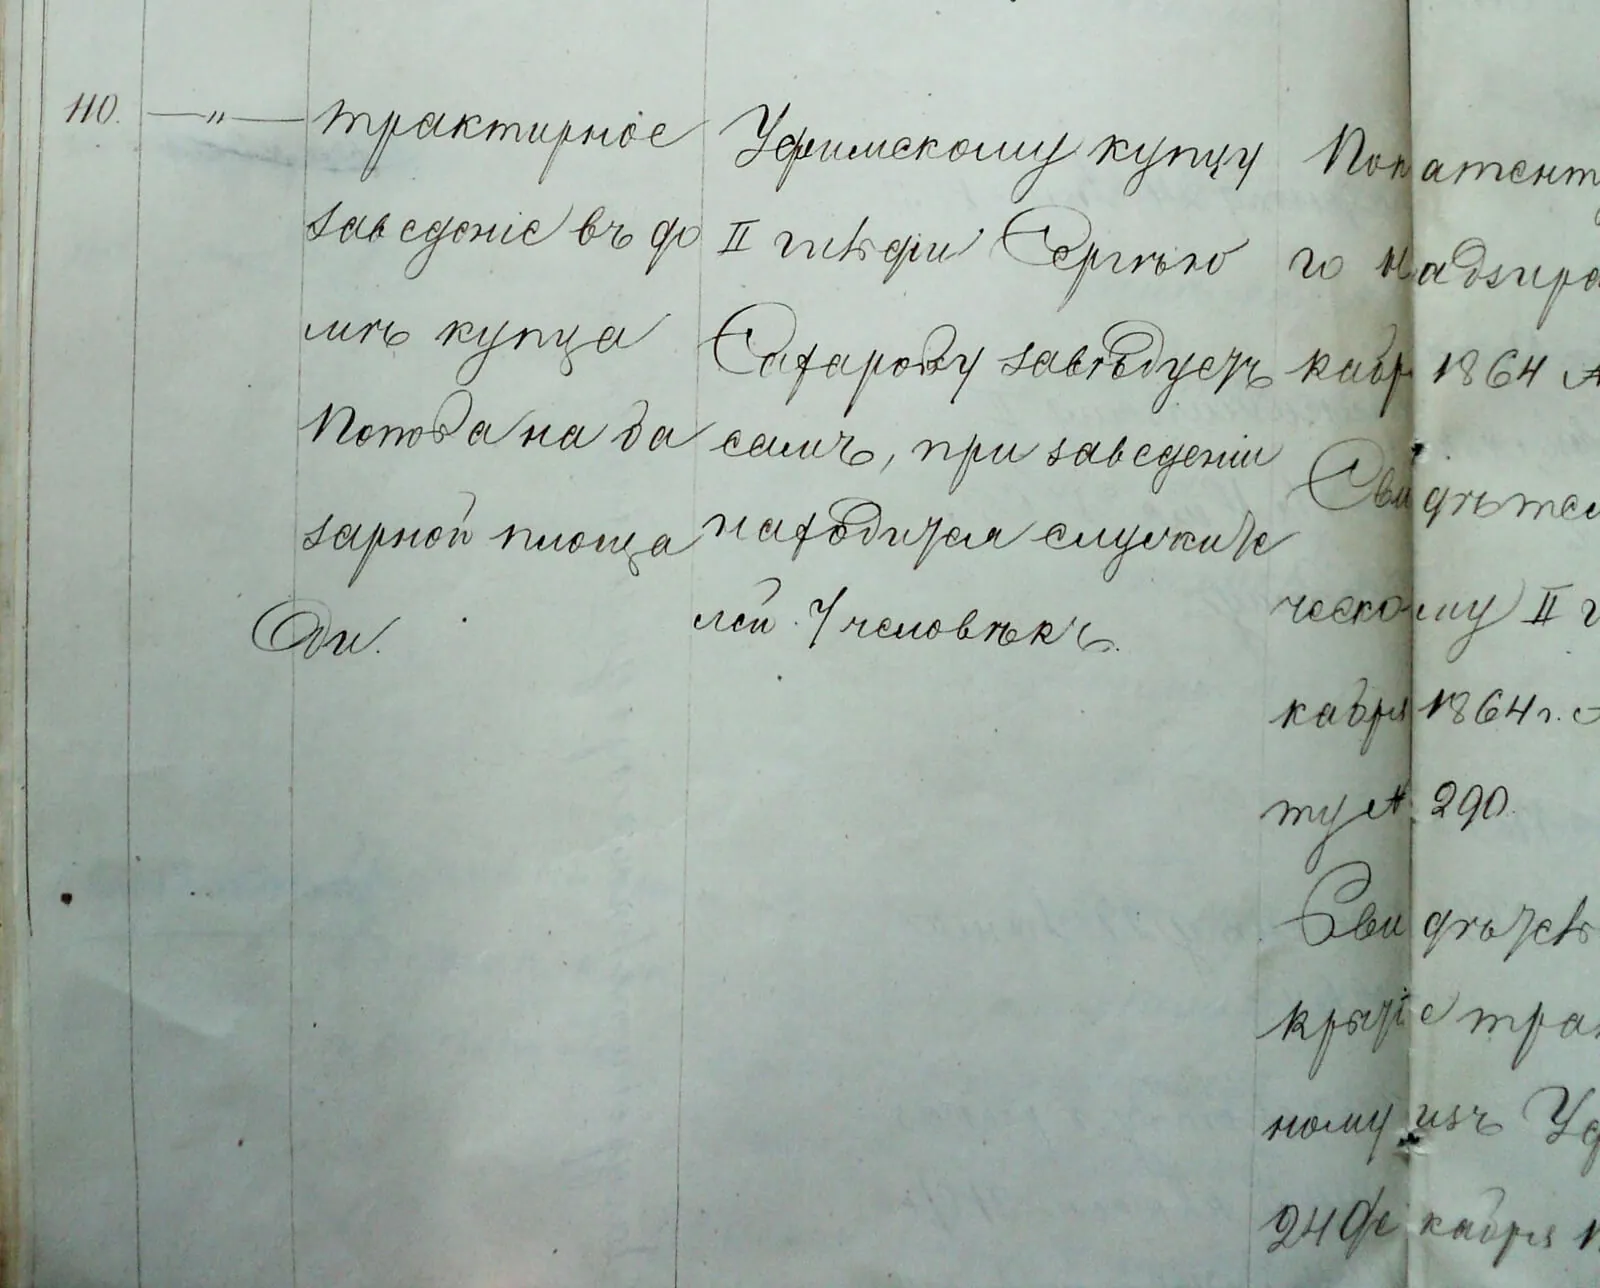 110. — " — трактирное
заведеніе въ до
мѣ купца
Попова на ба
зарной площа
ди.
Уфимскому купцу
II гильдіи Сергѣю
Сахарову завѣдуетъ
самъ, при заведеніи
находится служите
лей 7 человѣкъ.
По патенту
го надзира
кабр 1864 №
Свидѣтел
ческому II г
кабря 1864 г. №
ту № 290.
Свидѣтель
крытіе трак
ному изъ Уф
24 декабря 1